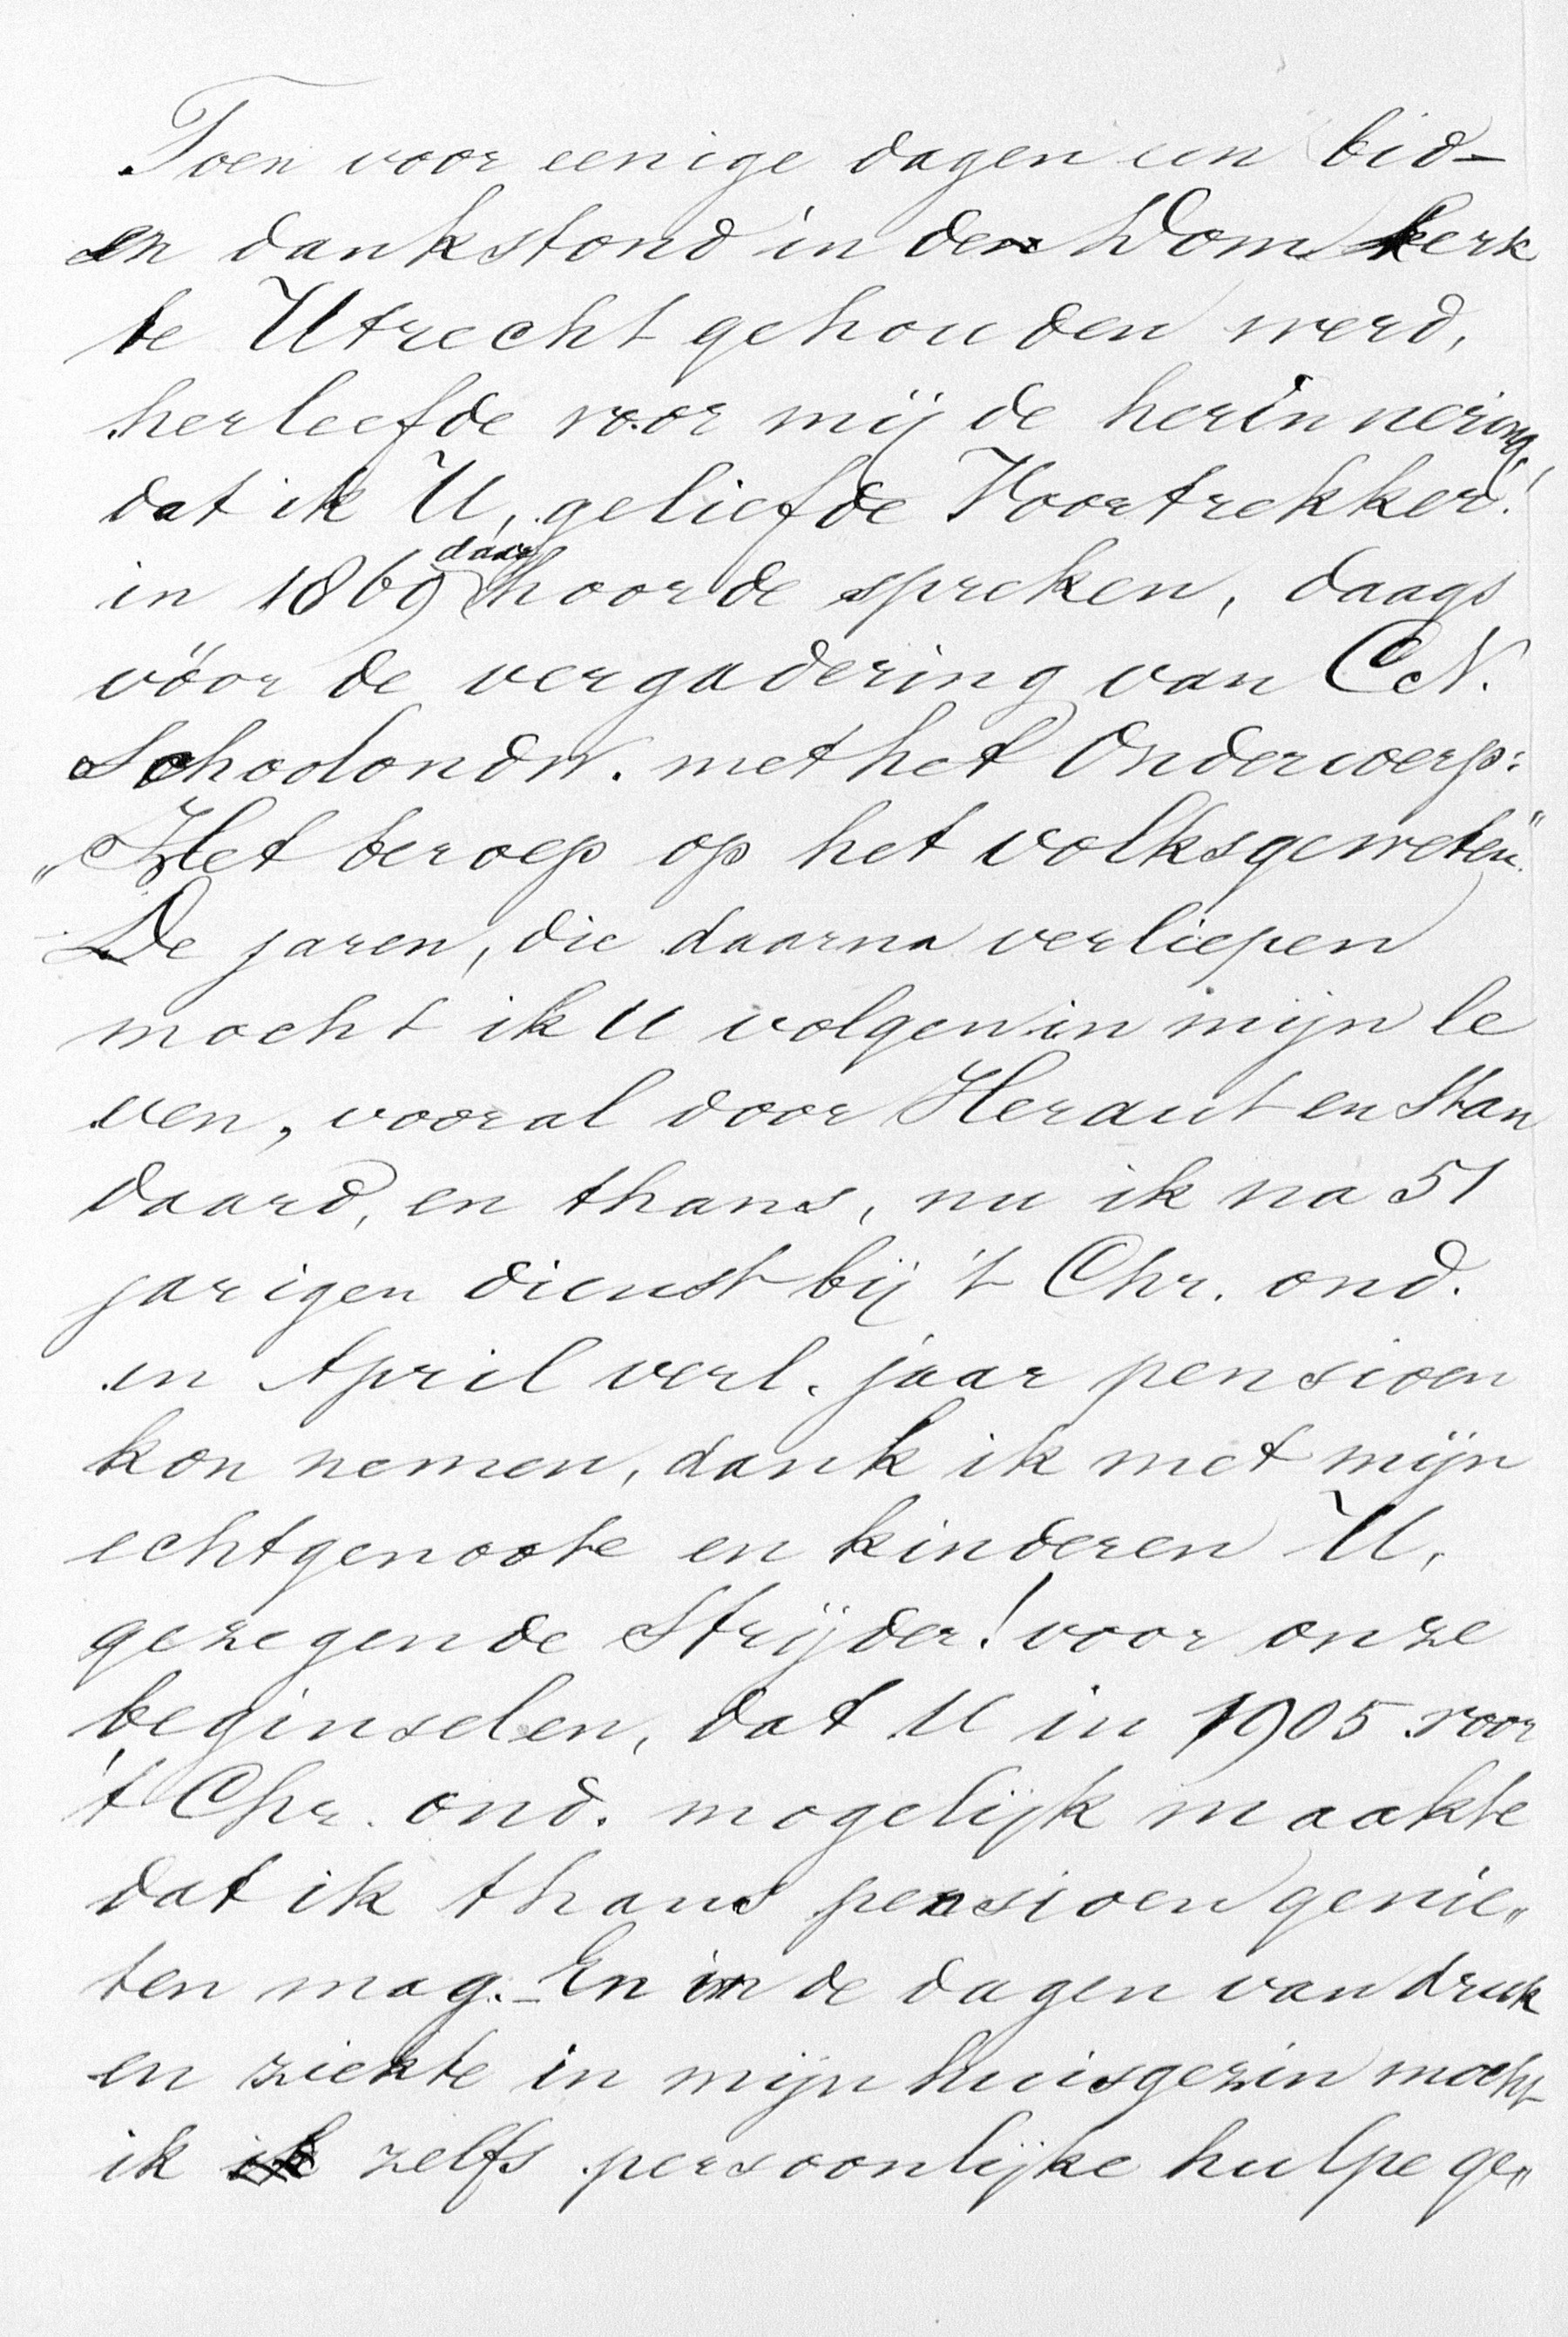 Toen voor eenige dagen een bid-
en dankstond in den Dom kerk
te Utrecht gehouden werd,
herleefde voor mij de herinnering,
dat ik U, geliefde Voortrekker!
in 1869 daar hoorde spreken, daags
vóór de vergadering van C.N.
Schoolondw. met het Onderwerp:
„Het beroep op het volksgeweten".
De jaren, die daarna verliepen
mocht ik U volgen in mijn le
ven, vooral door Heraut en Stan
daard, en thans, nu ik na 51
jarigen dienst bij 't Chr. ond.
in April verl. jaar pensioen
kon nemen, dank ik met mijn
echtgenoote en kinderen U,
gezegende Strijder! voor onze
beginselen, dat U in 1905 voor
't Chr. ond. mogelijk maakte
dat ik thans pensioen genie„
ten mag. – En in de dagen van druk
en ziekte in mijn huisgezin mocht
ik zelfs persoonlijke hulpe ge„